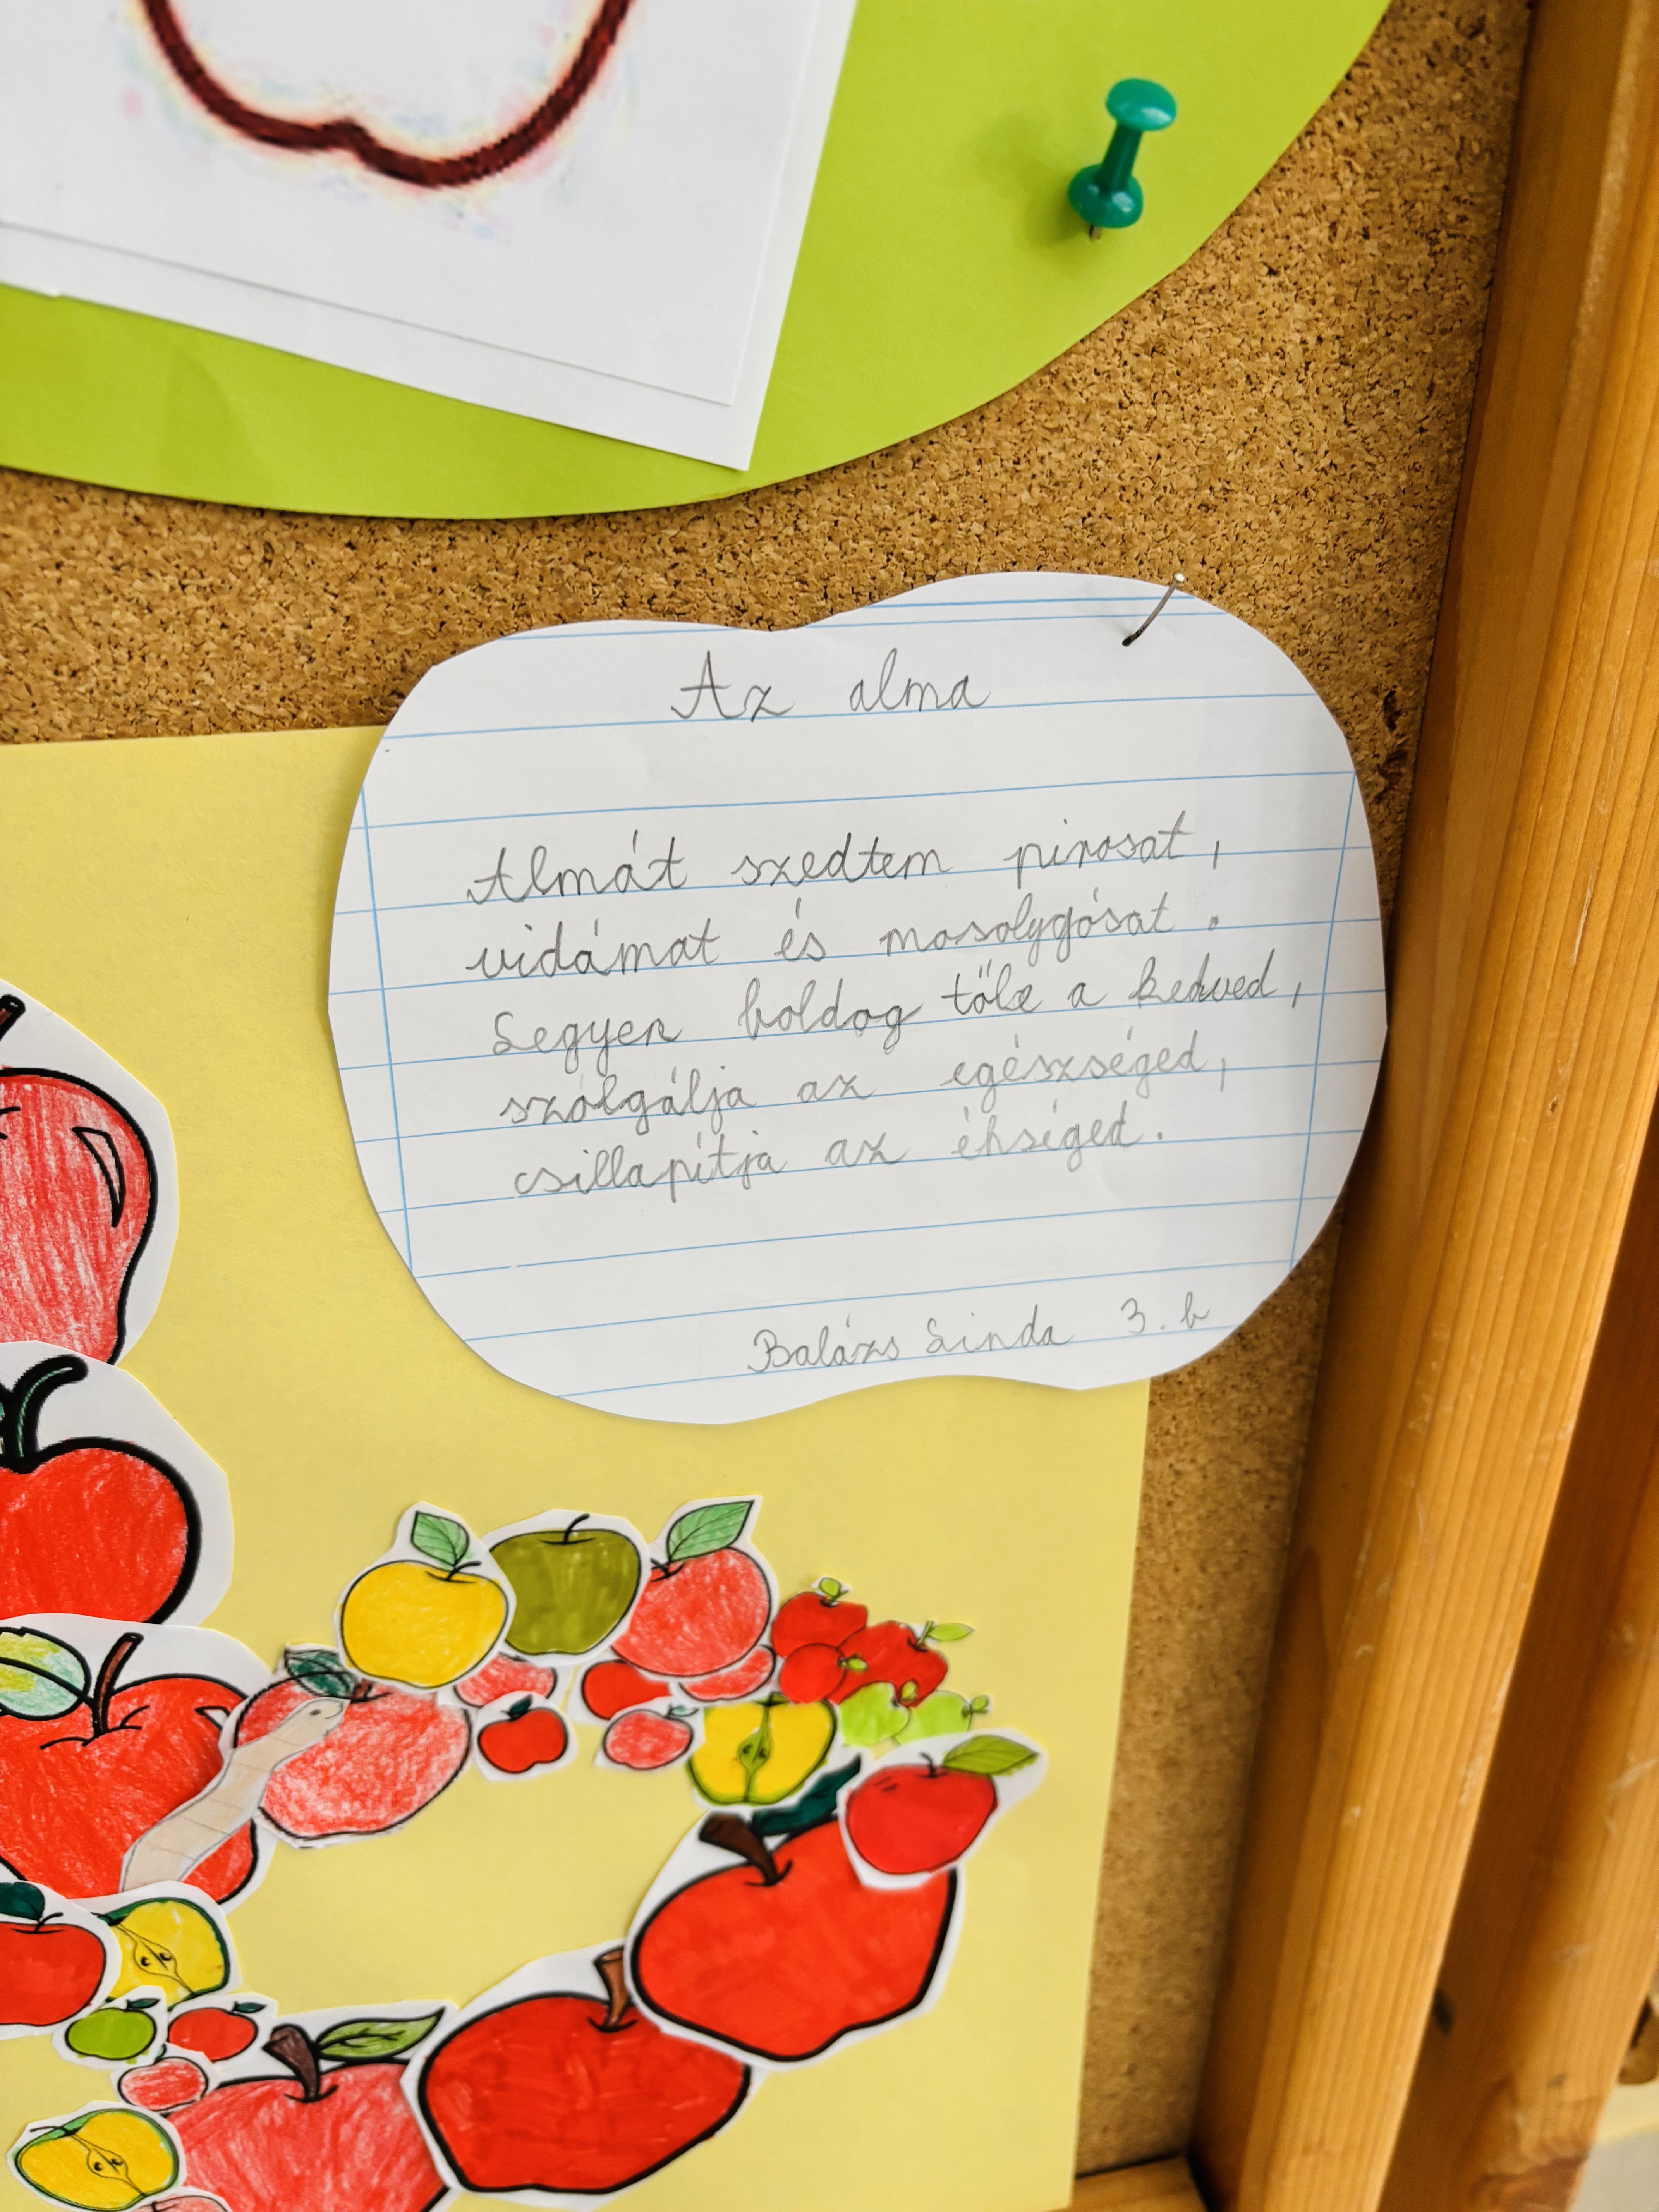 Az alma
Almát szedtem pirosat,
vidámat és mosolygósat.
Legyen boldog tőle a kedved,
szolgálja az egészséged,
csillapítja az éhséged.
Balázs Linda 3. b